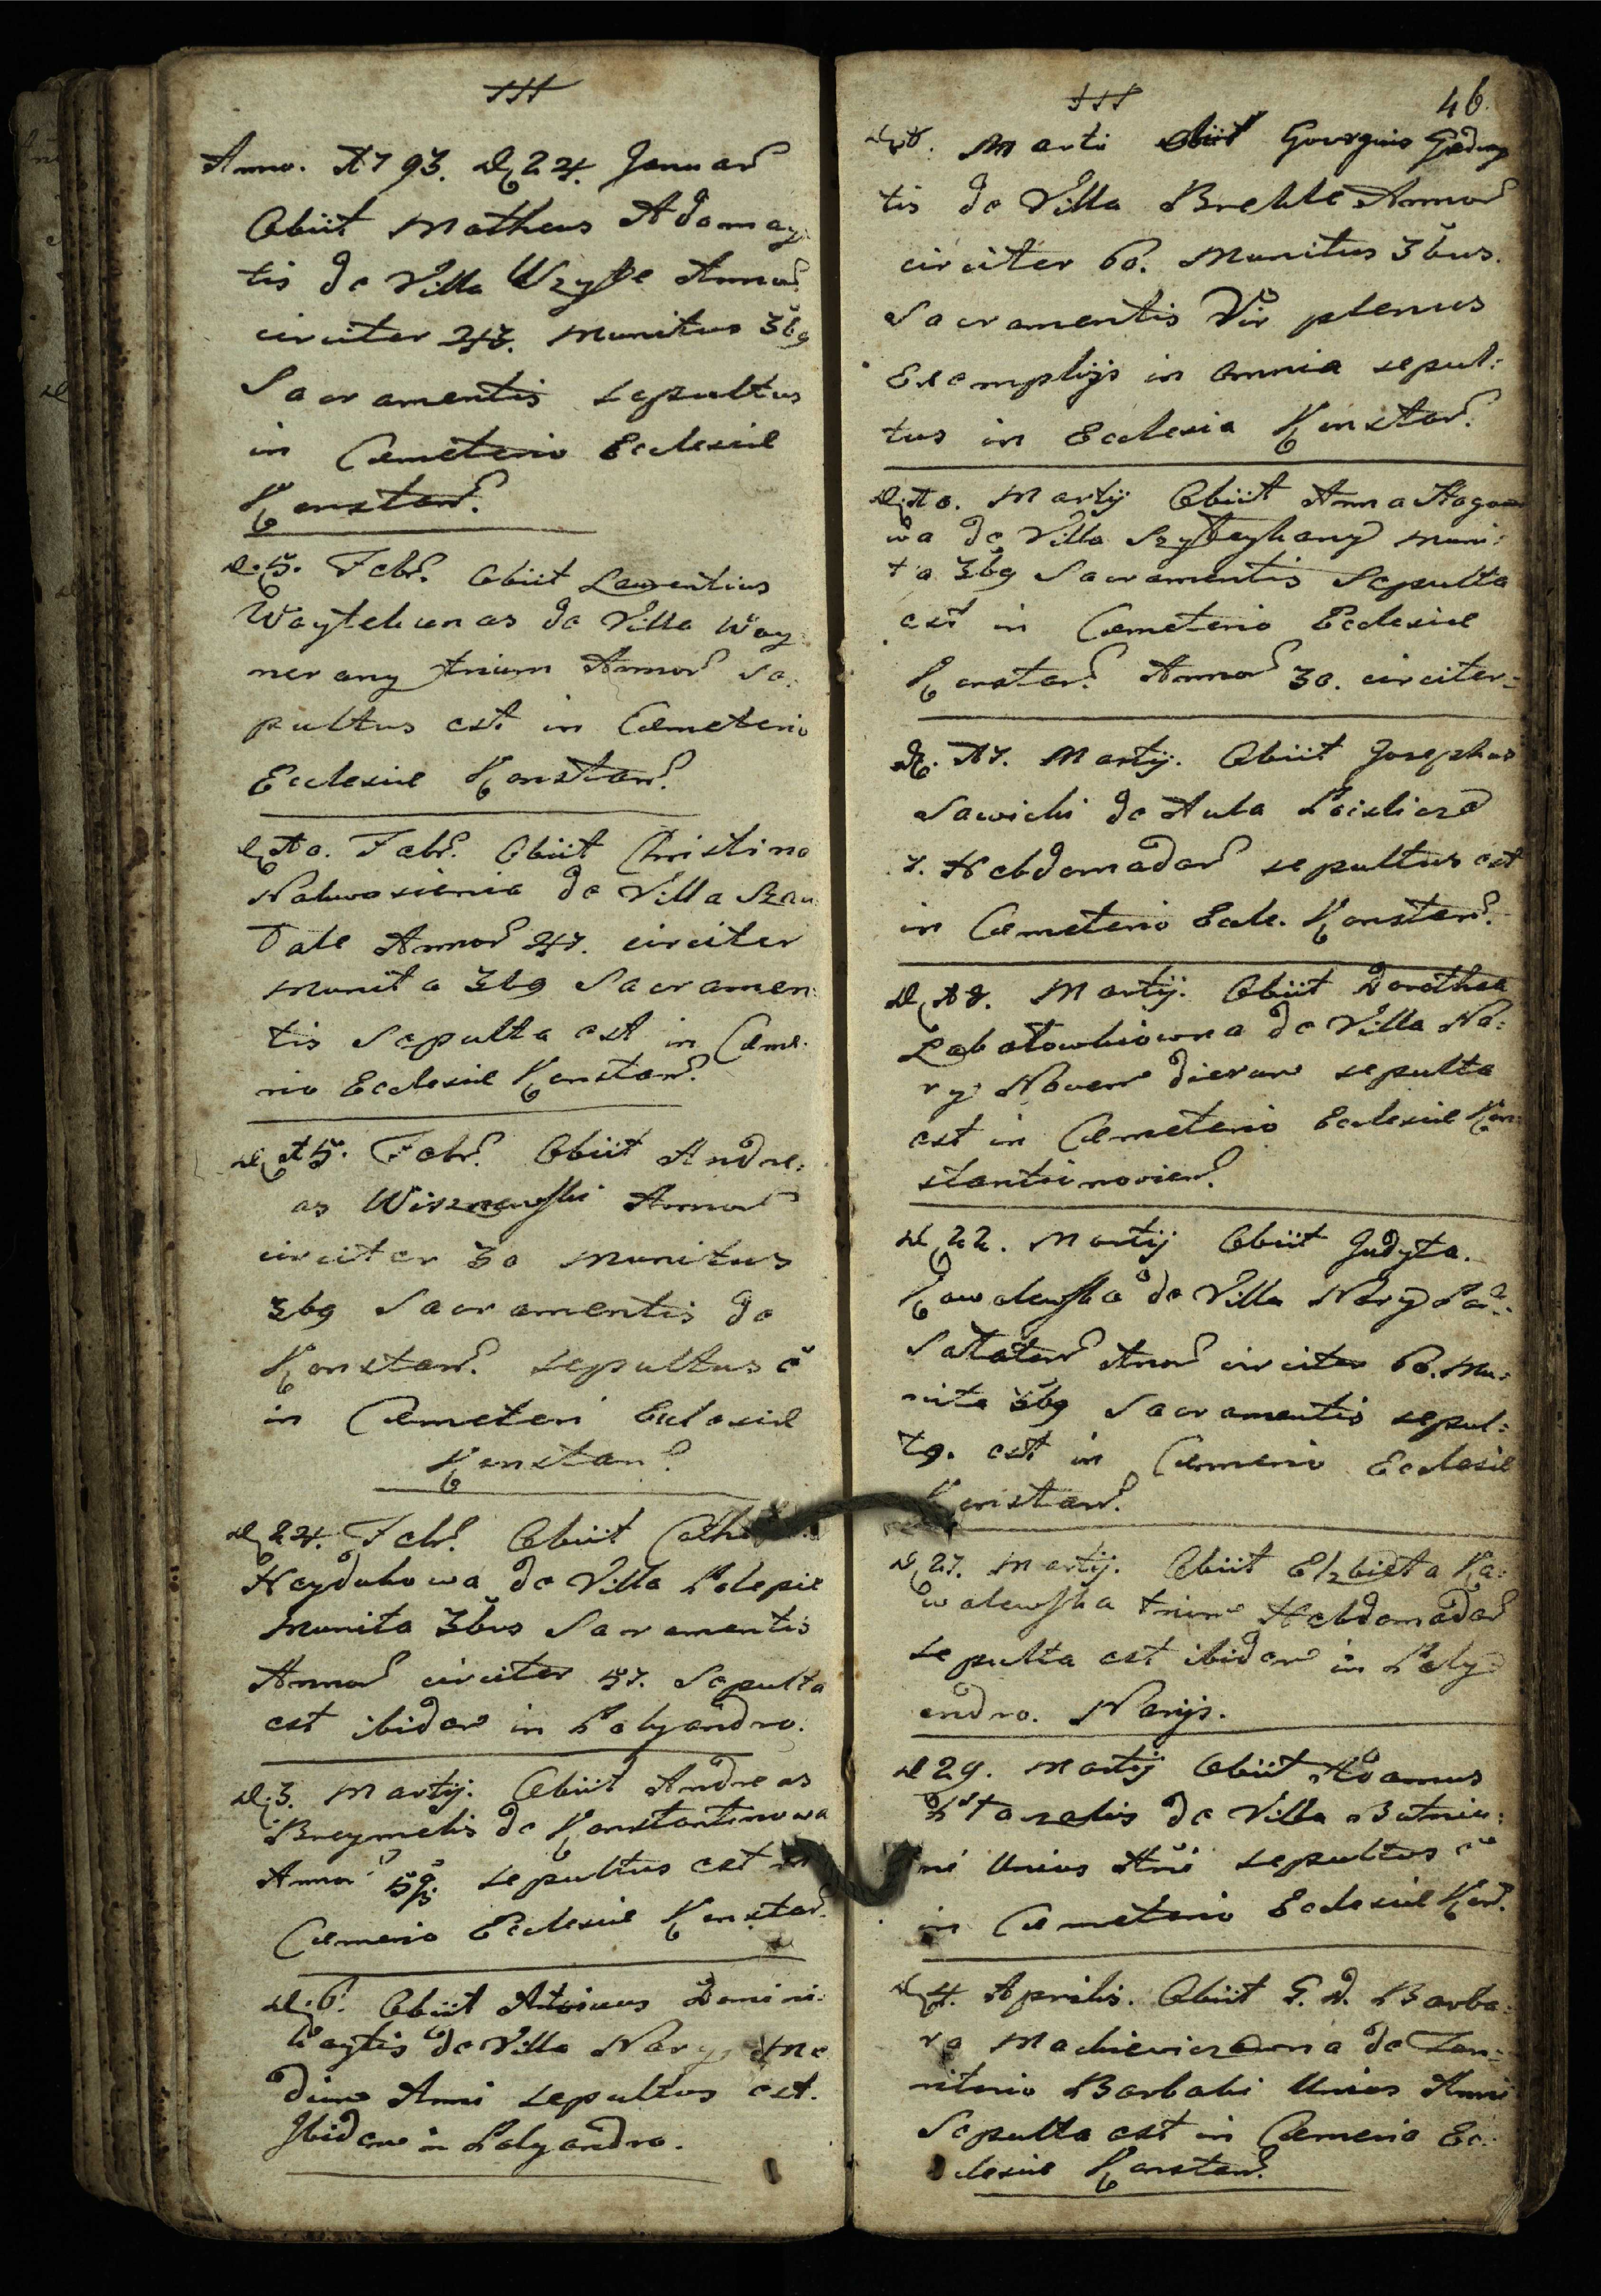 Anno. 1793. D. 24. Januar
Obiit Matheus Adamay
tis de Villa Wzyſſe Annor
circiter 43. Munitus 3bg
Sacramentis sepultus
in Cæmeterio Ecclesiæ
Konstan.
D. 5. Febr. Obiit Laurentius
Woytekunas de Villa Way:
nerany trium Annor se:
pultus est in Cæmeterio
Ecclesiæ Konstan.
D. 10. Febr. Obiit Christina
de Villa Szau
dale Annor 47. circiter
munita 3bg Sacramen:
tis Sepulta est in Cæme:
rio Ecclesiæ Konstan.
D. 15. Febr. Obiit Andre:
as Wiszniewſki Annor
circiter 30 munitus
3bg Sacramentis de
Konstan. sepultus ẽ
in Cæmeteri Eclesiæ
Konstan.
D. 24. Febr. Obiit
Haydukowa de Villa Polepie
Munita 3bus Sacramentis
Annor circiter 57. Sepulta
est ibidem in Polyandro.
D. 3. Martij. Obiit Andreas
Breymelis de Konstantinowa
Annor sepultus est in
Cæmerio Ecclesiæ Konstan.
D. 6. Obiit Domini:
kaytis de Villa Nary
dium Anni sepultus est.
Ibidem in Polyandro.
46.
Marti obiit Georgius
tis de Villa Annor
circiter 60. Munitus 3bus.
Sacramentis Vir plenus
Exemplijs in omnia sepul:
tus in Ecclesia Konstan.
D. 10. Martij Obiit Anna
wa de Villa muni:
ta 3bg Sacramentis Sepulta
est in Cæmeterio Ecclesiæ
Konstan. Annor 30. circiter
D. 17. Martij. Obiit Josephus
Sawicki de Aula
7. Hebdomadar sepultus est
in Cæmeterio Eccle. Konstan.
D. 18. Martij. Obiit Dorothea
Labatowkiowna de Villa Na:
ry Novem dierum sepulta
est in Cæmeterio Ecclesiæ Kon
stantinovien.
D. 22. Martij Obiit Judyta.
Kowalewſka de Villa Nary
Annor circiter 60. Mu:
nita 3bg Sacramentis sepul:
ta. est in Cæmerio Eclesiæ
Konstan.
D. 27. Martij. Obiit Elzbieta Ko:
walewſka trium Hebdomadar
sepulta est ibidem in Poly
andro. Narijs.
D. 29. Martij Obiit Adamus
de Villa Butniu:
ni Unius Añi sepultus ẽ
in Cæmeterio Ecclesiæ Kon.
D. 4. Aprilis. Obiit G. D. Barba:
ra Mackiewiczowna de Ten:
ritorio Barbaki Unius Anni
Sepulta est in Cæmerio Ec:
clesiæ Konstan.